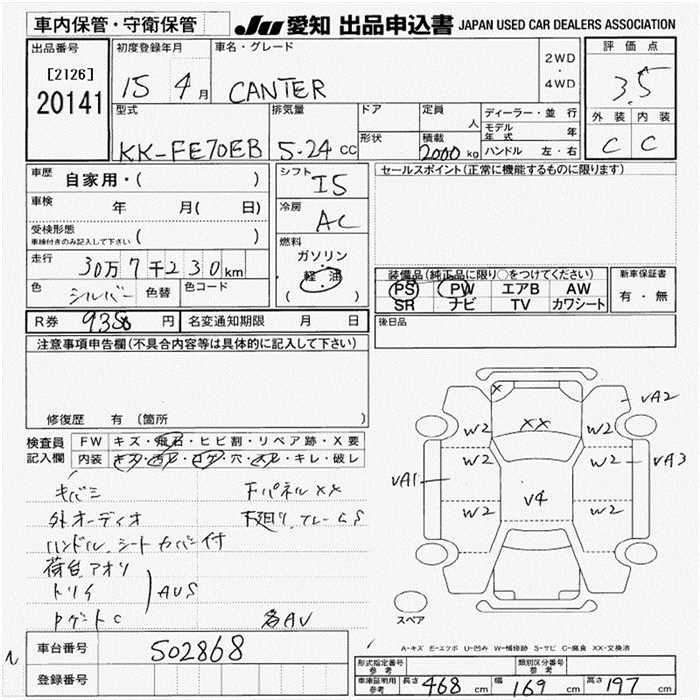 車内保管・守衛保管
JU 愛知 出品申込書 JAPAN USED CAR DEALERS ASSOCIATION
出品番号
[2126]
20141
初度登録年月
15 4月
車名・グレード
CANTER
2WD
・
4WD
評価点
3.5
外装 内装
C C
型式
KK-FE70EB
排気量
5.24 cc
ドア
形状
定員
人
積載
2000 kg
ディーラー・並行
モデル年式 年
ハンドル 左・右
車歴
自家用・( )
車検
年 月( 日)
受検形態
車検付きのみ記入して下さい ( )
走行
30万7千230km
色
シルバー
色替
色コード
シフト
I5
冷房
AC
燃料
ガソリン
軽・油
( )
セールスポイント(正常に機能するものに限ります)
装備品(純正品に限り○をつけてください)
PS PW エアB AW
SR ナビ TV カワシート
新車保証書
有・無
後日品
R券 9380 円
名変通知期限 月 日
注意事項申告欄(不具合内容等は具体的に記入して下さい)
修復歴 有 〔箇所 〕
検査員記入欄
FW キズ・飛石・ヒビ割・リペア跡・X要
内装 キズ・ヨゴレ・コゲ・穴・スレ・キレ・破レ
キバミ
外オーディオ
ハンドル、シートカバー付
荷台、アオリ
トリイ
AUS
PゲートC
下パネルXX
下廻リ、フレームS
各AU
車台番号
502868
登録番号
X
XX
W2
W2
W2
W2
W2
W2
VA2
VA1
VA3
V4
スペア
A-キズ E-エクボ U-凹み W-補修跡 S-サビ C-腐食 XX-交換済
形式指定番号
参考
類別区分番号
参考
車庫証明用
参考
長さ 468 cm
幅 169 cm
高さ 197 cm